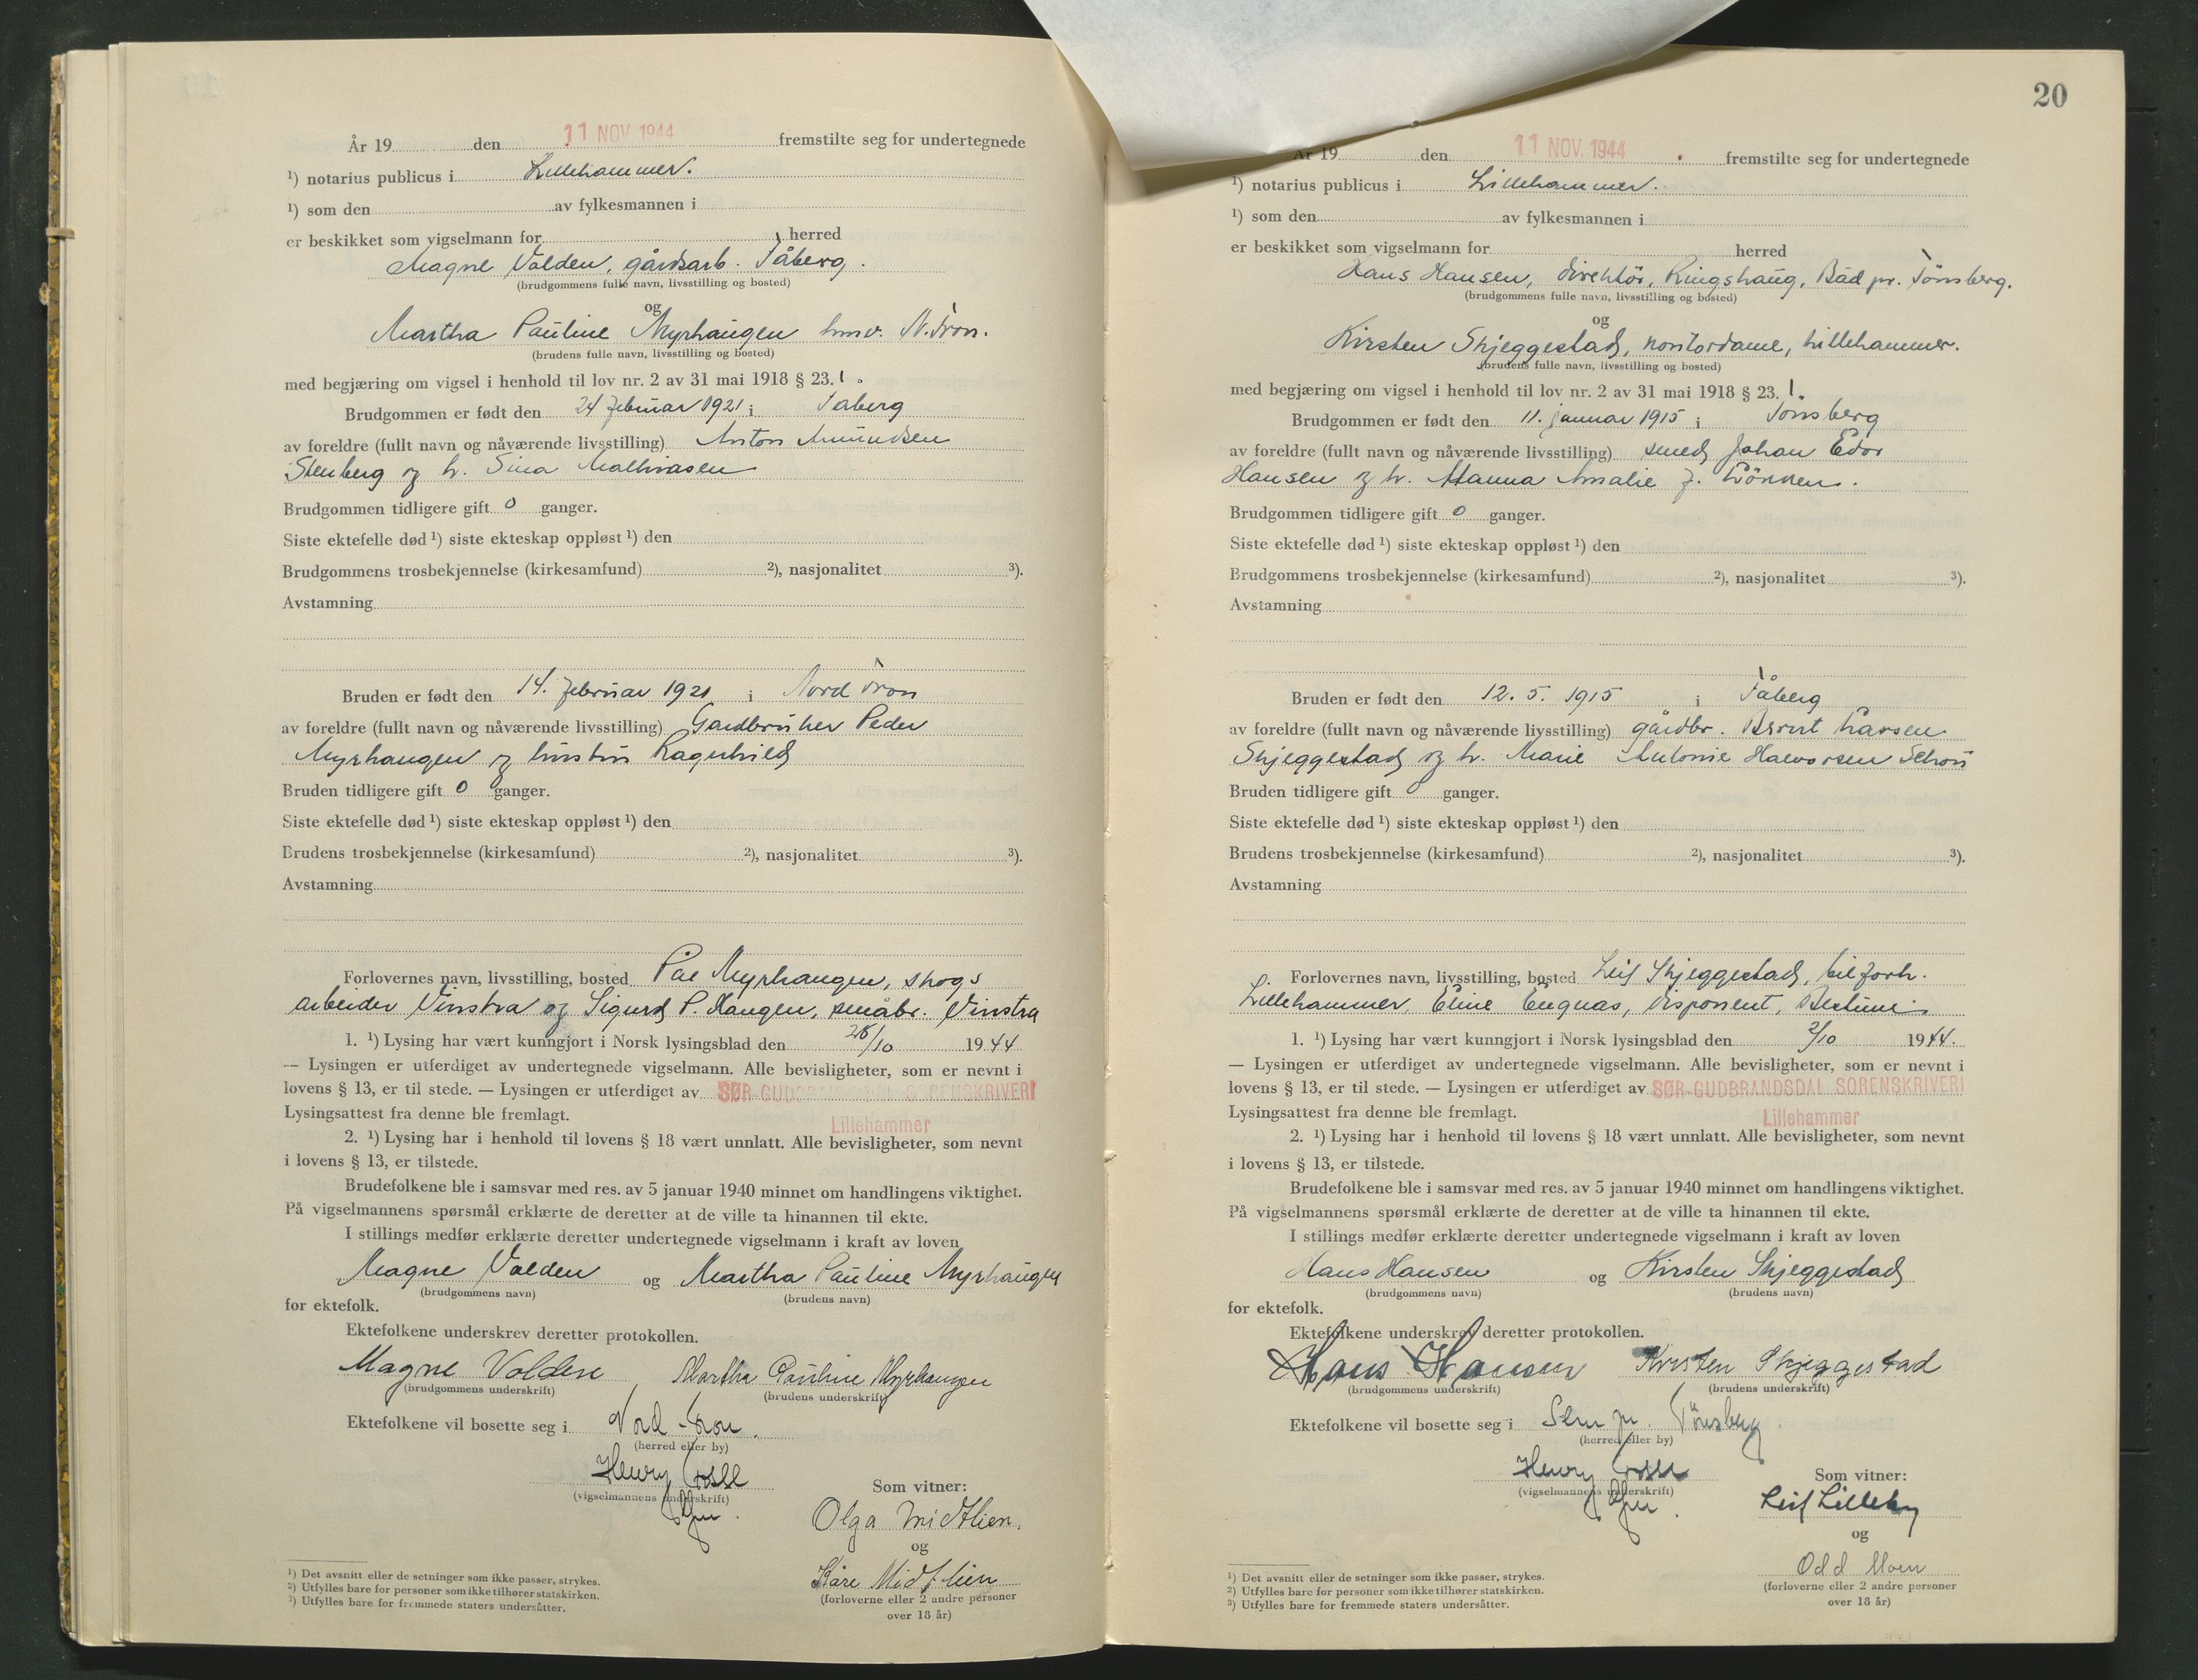 År 19 den 11 NOV 1944 fremstilte seg for undertegnede
¹) notarius publicus i Lillehammer.
¹) som den av fylkesmannen i
er beskikket som vigselmann for herred
Magne Volden, gårdsarb. Fåberg.
(brudgommens fulle navn, livsstilling og bosted)
og
Martha Pauline Myrhaugen husv. N. Fron.
(brudens fulle navn, livsstilling og bosted)
med begjæring om vigsel i henhold til lov nr. 2 av 31 mai 1918 § 23.1.
Brudgommen er født den 24 februar 1921 i Fåberg
av foreldre (fullt navn og nåværende livsstilling) Anton Amundsen
Stenberg og h. Sina Mathiasen
Brudgommen tidligere gift 0 ganger.
Siste ektefelle død ¹) siste ekteskap oppløst ¹) den
Brudgommens trosbekjennelse (kirkesamfund) ²), nasjonalitet ³).
Avstamning
Bruden er født den 14. februar 1921 i Nord Fron
av foreldre (fullt navn og nåværende livsstilling) Gardbruker Peder
Myrhaugen og hustru Ragnhild
Bruden tidligere gift 0 ganger.
Siste ektefelle død ¹) siste ekteskap oppløst ¹) den
Brudens trosbekjennelse (kirkesamfund) ²), nasjonalitet ³).
Avstamning
Forlovernes navn, livsstilling, bosted Pål Myrhaugen, skogs
arbeider Vinstra og Sigurd P. Haugen, småbr. Vinstra
1. ¹) Lysing har vært kunngjort i Norsk lysingsblad den /10 1944
— Lysingen er utferdiget av undertegnede vigselmann. Alle bevisligheter, som er nevnt i
lovens § 13, er til stede. — Lysingen er utferdiget av SØR-GUDBRANDSDAL SORENSKRIVERI
Lysingsattest fra denne ble fremlagt. Lillehammer
2. ¹) Lysing har i henhold til lovens § 18 vært unnlatt. Alle bevisligheter, som nevnt
i lovens § 13, er tilstede.
Brudefolkene ble i samsvar med res. av 5 januar 1940 minnet om handlingens viktighet.
På vigselmannens spørsmål erklærte de deretter at de ville ta hinannen til ekte.
I stillings medfør erklærte deretter undertegnede vigselmann i kraft av loven
Magne Volden og Martha Pauline Myrhaugen
(brudgommens navn) (brudens navn)
for ektefolk.
Ektefolkene underskrev deretter protokollen.
Magne Volden Martha Pauline Myrhaugen
(brudgommens underskrift) (brudens underskrift)
Ektefolkene vil bosette seg i Nord-Fron.
(herred eller by)
Henry
(vigselmannens underskrift)
Som vitner:
Olga Midtlien.
og
Kåre Midtlien
(forloverne eller 2 andre personer
over 18 år)
¹) Det avsnitt eller de setninger som ikke passer, strykes.
²) Utfylles bare for personer som ikke tilhører statskirken.
³) Utfylles bare for fremmede staters undersåtter.
20
År 19 den 11 NOV. 1944 fremstilte seg for undertegnede
¹) notarius publicus i Lillehammer.
¹) som den av fylkesmannen i
er beskikket som vigselmann for herred
Hans Hansen, direktør, Ringshaug, Båd pr. Tønsberg.
(brudgommens fulle navn, livsstilling og bosted)
og
Kirsten Skjeggestad, kontordame, Lillehammer.
(brudens fulle navn, livsstilling og bosted)
med begjæring om vigsel i henhold til lov nr. 2 av 31 mai 1918 § 23.1.
Brudgommen er født den 11. januar 1915 i Tønsberg
av foreldre (fullt navn og nåværende livsstilling) smed Johan Edor
Hansen og h. Hanna Amalie f.
Brudgommen tidligere gift 0 ganger.
Siste ektefelle død ¹) siste ekteskap oppløst ¹) den
Brudgommens trosbekjennelse (kirkesamfund) ²), nasjonalitet ³).
Avstamning
Bruden er født den 12. 5. 1915 i Fåberg
av foreldre (fullt navn og nåværende livsstilling) gårdbr. Bernt Larsen
Skjeggestad og h. Marie Antonie Halvorsen
Bruden tidligere gift 0 ganger.
Siste ektefelle død ¹) siste ekteskap oppløst ¹) den
Brudens trosbekjennelse (kirkesamfund) ²), nasjonalitet ³).
Avstamning
Forlovernes navn, livsstilling, bosted Leif Skjeggestad, bilforh.
Lillehammer, disponent,
1. ¹) Lysing har vært kunngjort i Norsk lysingsblad den 2/10 1944.
— Lysingen er utferdiget av undertegnede vigselmann. Alle bevisligheter, som er nevnt i
lovens § 13, er til stede. — Lysingen er utferdiget av SØR-GUDBRANDSDAL SORENSKRIVERI
Lysingsattest fra denne ble fremlagt. Lillehammer
2. ¹) Lysing har i henhold til lovens § 18 vært unnlatt. Alle bevisligheter, som nevnt
i lovens § 13, er tilstede.
Brudefolkene ble i samsvar med res. av 5 januar 1940 minnet om handlingens viktighet.
På vigselmannens spørsmål erklærte de deretter at de ville ta hinannen til ekte.
I stillings medfør erklærte deretter undertegnede vigselmann i kraft av loven
Hans Hansen og Kirsten Skjeggestad
(brudgommens navn) (brudens navn)
for ektefolk.
Ektefolkene underskrev deretter protokollen.
Hans Hansen Kirsten Skjeggestad
(brudgommens underskrift) (brudens underskrift)
Ektefolkene vil bosette seg i Sem pr. Tönsberg
(herred eller by)
Henry
(vigselmannens underskrift)
Som vitner:
Leif Lilleby
og
Odd Moen
(forloverne eller 2 andre personer
over 18 år)
¹) Det avsnitt eller de setninger som ikke passer, strykes.
²) Utfylles bare for personer som ikke tilhører statskirken.
³) Utfylles bare for fremmede staters undersåtter.